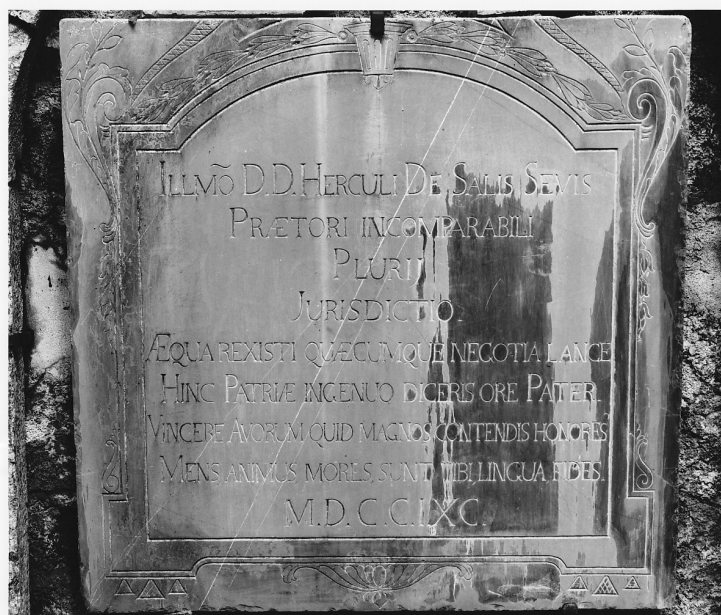 ILLMÕ D.D. HERCULI DE SALIS SEVIS
PRÆTORI INCOMPARABILI
PLURII
JURISDICTIO.
ÆQUA REXISTI QUÆCUMQUE NEGOTIA LANCE
HINC PATRIÆ INGENUO DICERIS ORE PATER.
VINCERE AVORUM QUID MAGNOS CONTENDIS HONORES
MENS, ANIMUS MORES, SUNT TIBI, LINGUA, FIDES.
M.D.C.C.LXC.